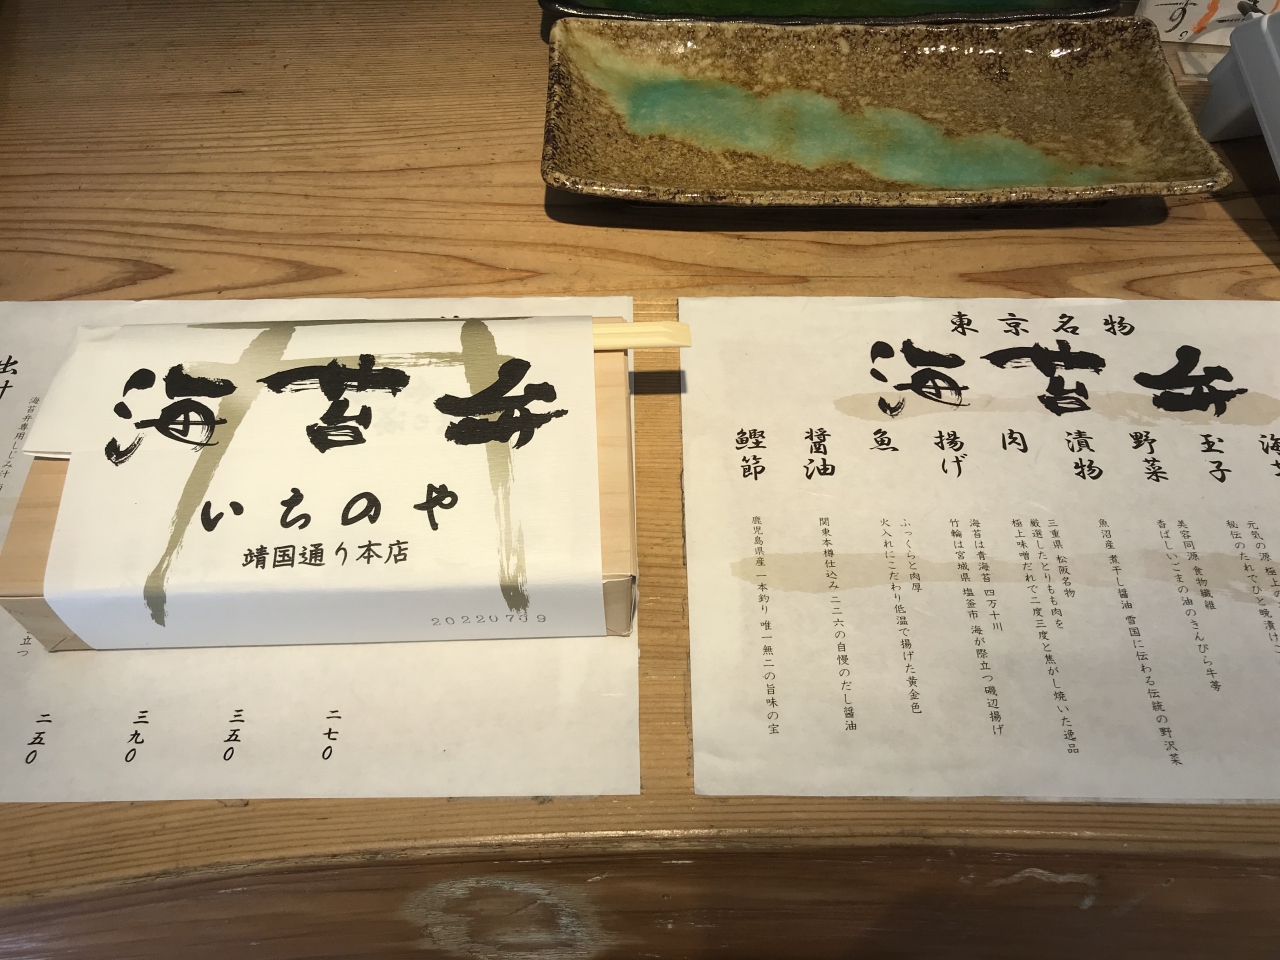 海苔弁
いちのや
靖国通り本店
20220709
出汁
海苔弁専用しじみ汁
立つ
二七〇
三五〇
三九〇
二五〇
東京名物
海苔弁
玉子
野菜
漬物
肉
揚げ
魚
醤油
鰹節
元気の源 極上の
秘伝のたれでひと晩漬け
美容同源 食物繊維
香ばしいごまの油のきんぴら牛蒡
魚沼産 煮干し醤油 雪国に伝わる伝統の野沢菜
三重県 松阪名物
厳選したとりもも肉を
極上味噌だれで二度三度と焦がし焼いた逸品
海苔は青海苔 四万十川
竹輪は宮城県 塩釜市 海が際立つ磯辺揚げ
ふっくらと肉厚
火入れにこだわり低温で揚げた黄金色
関東本樽仕込み 二二六の自慢のだし醤油
鹿児島県産 一本釣り 唯一無二の旨味の宝